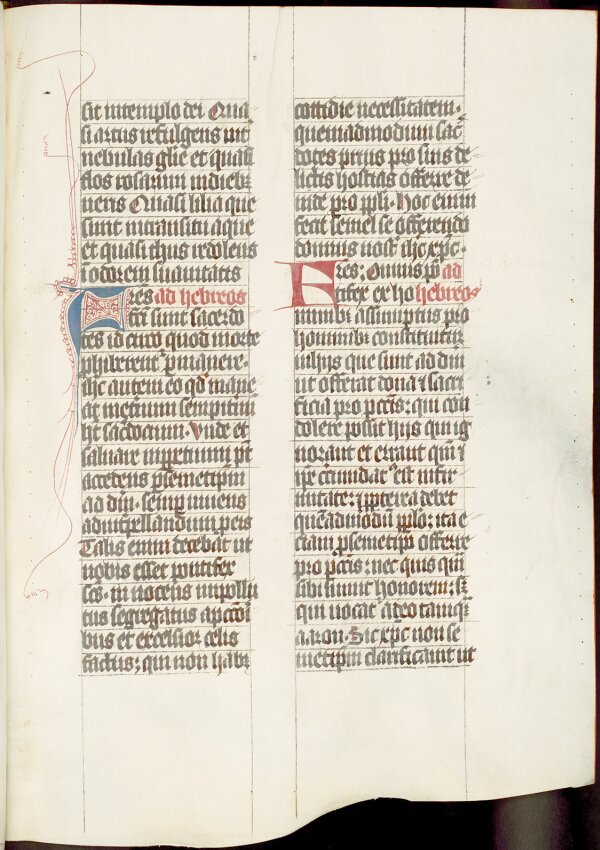 sit in templo dei Qua
si arcus refulgens int
nebulas glie et quasi
flos rosarum in dieb
ueris Quasi lilia que
sunt in transitu aque
et quasi thus redolens
i odorem suauitatis
Fres ad hebreos
fcti sunt sacerdo
tes id circo quod morte
phiberent pmanere·
ihc autem eo qd mane
at in etnum sempitnu
ht sacdocium· Unde et
saluare inppetuum pt
accedens p semetipm
ad dm· semp uiuens
ad intpellandum p eis
Talis enim decebat ut
nobis esset pontifex
scs· in nocens inpollu
tus segregatus a pctori
bus et excelsior celis
factus; qui non habz
cottidie necessitatem·
quem admodum sac
dotes prius pro suis de
lictis hostias offerre de
inde pro ppli· hoc enim
fecit semel se offerendo
dominus nost ihc xpc·
Fres; Omnis po ad
tifex ex ho hebreos
minibz assumptus pro
hominibz constituitur
in hijs que sunt ad dm
ut offerat dona i sacri
ficia pro pctis; qui con
dolere possit hijs qui ig
norant et errant qm i
ipe circumdat est infir
mitate; i ppterea debet
quemadmodu p pplo; ita e
ciam p semetipo offerre
pro pctis; nec quis qm
sibi sumit honorem; sz
qui uocat a deo tamqz
aaron· Sic xpc non se
metipm clarificauit ut